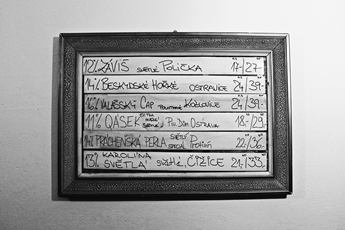 12% ZÁVIŠ SVĚTLÉ POLIČKA 17.-/27.-
14% BESKYDSKÉ HOŘKÉ OSTRAVICE 24/39.-
16% VALAŠSKÝ CAP POLOTMAVÉ KOZLOVICE 24/39.-
11% QASEK SVĚTLÉ PIV. DŮM OSTRAVA 18.-/29.-
14% PRÁCHEŇSKÁ PERLA SVĚTLÝ SPECIÁL PROTIVÍN 22.-/36.-
13% KAROLÍNA SVĚTLÁ SVĚTLÉ, ČÍŽICE 21.-/33.-